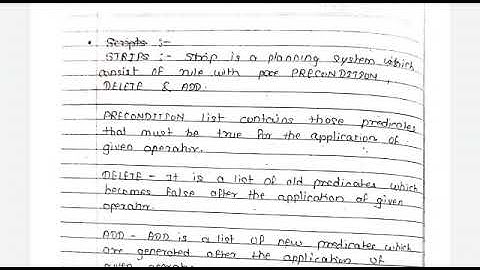 • Scripts :-
STRIPS :- Strip is a planning system which
consist of rule with PRECONDITION,
DELETE & ADD.
PRECONDITION list contains those predicates
that must be true for the application of
given operator.
DELETE - It is a list of old predicates which
becomes false after the application of given
operator.
ADD - ADD is a list of new predicates which
are generated after the application of
given operator